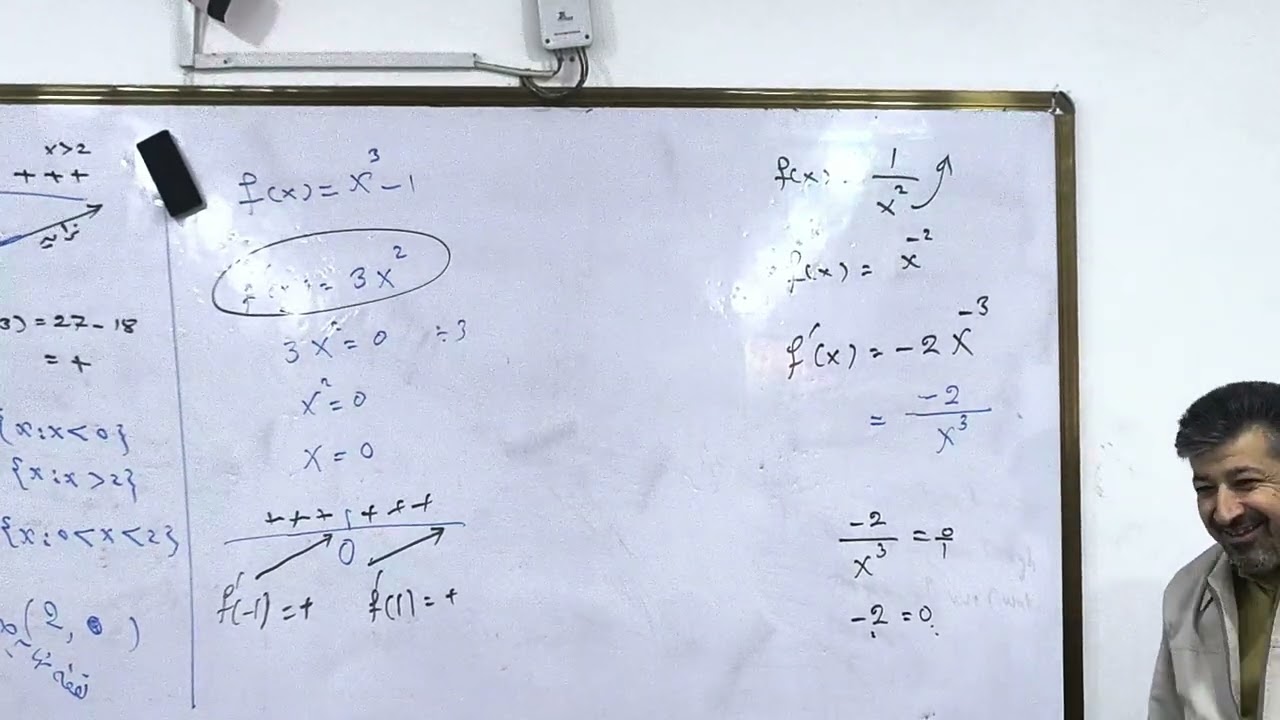 x>2
+++
3) = 27 - 18
= +
{x:x<0}
{x:x>2}
{x:0<x<2}
(2, 0)
نقطة
f(x) = x³ - 1
f'(x) = 3x²
3x² = 0 ÷3
x² = 0
x = 0
+++ +++
0
f'(-1) = + f'(1) = +
f(x) = 1/x²
f(x) = x⁻²
f'(x) = -2x⁻³
= -2/x³
-2/x³ = 0/1
-2 = 0